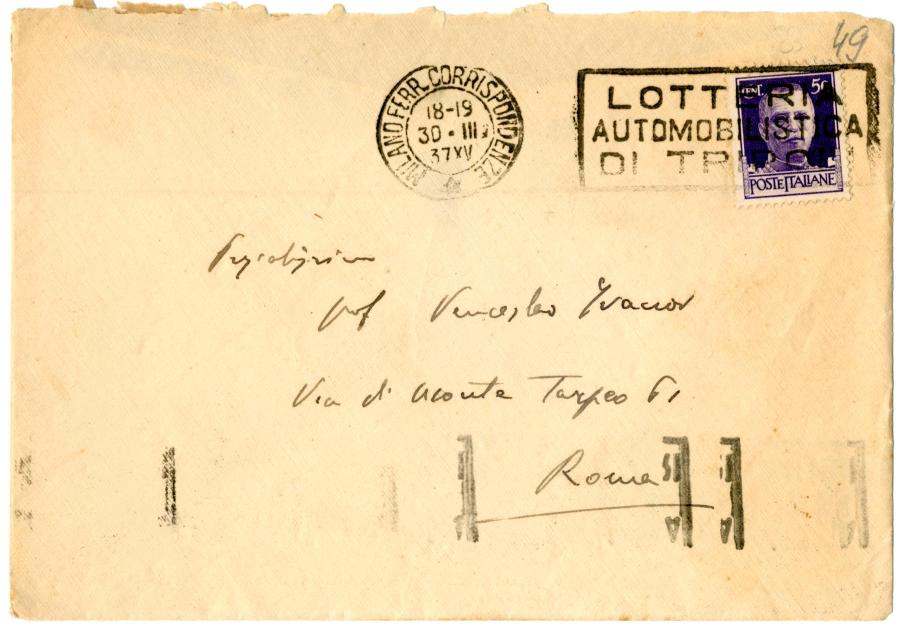 49
MILANO FERR. CORRISPONDENZE
18-19
30 · III
37 XV
LOTTERIA
AUTOMOBILISTICA
DI TRIPOLI
CENT. 50
POSTE ITALIANE
prof Venceslao Ivanov
Via di Monte Tarpeo 61
Roma